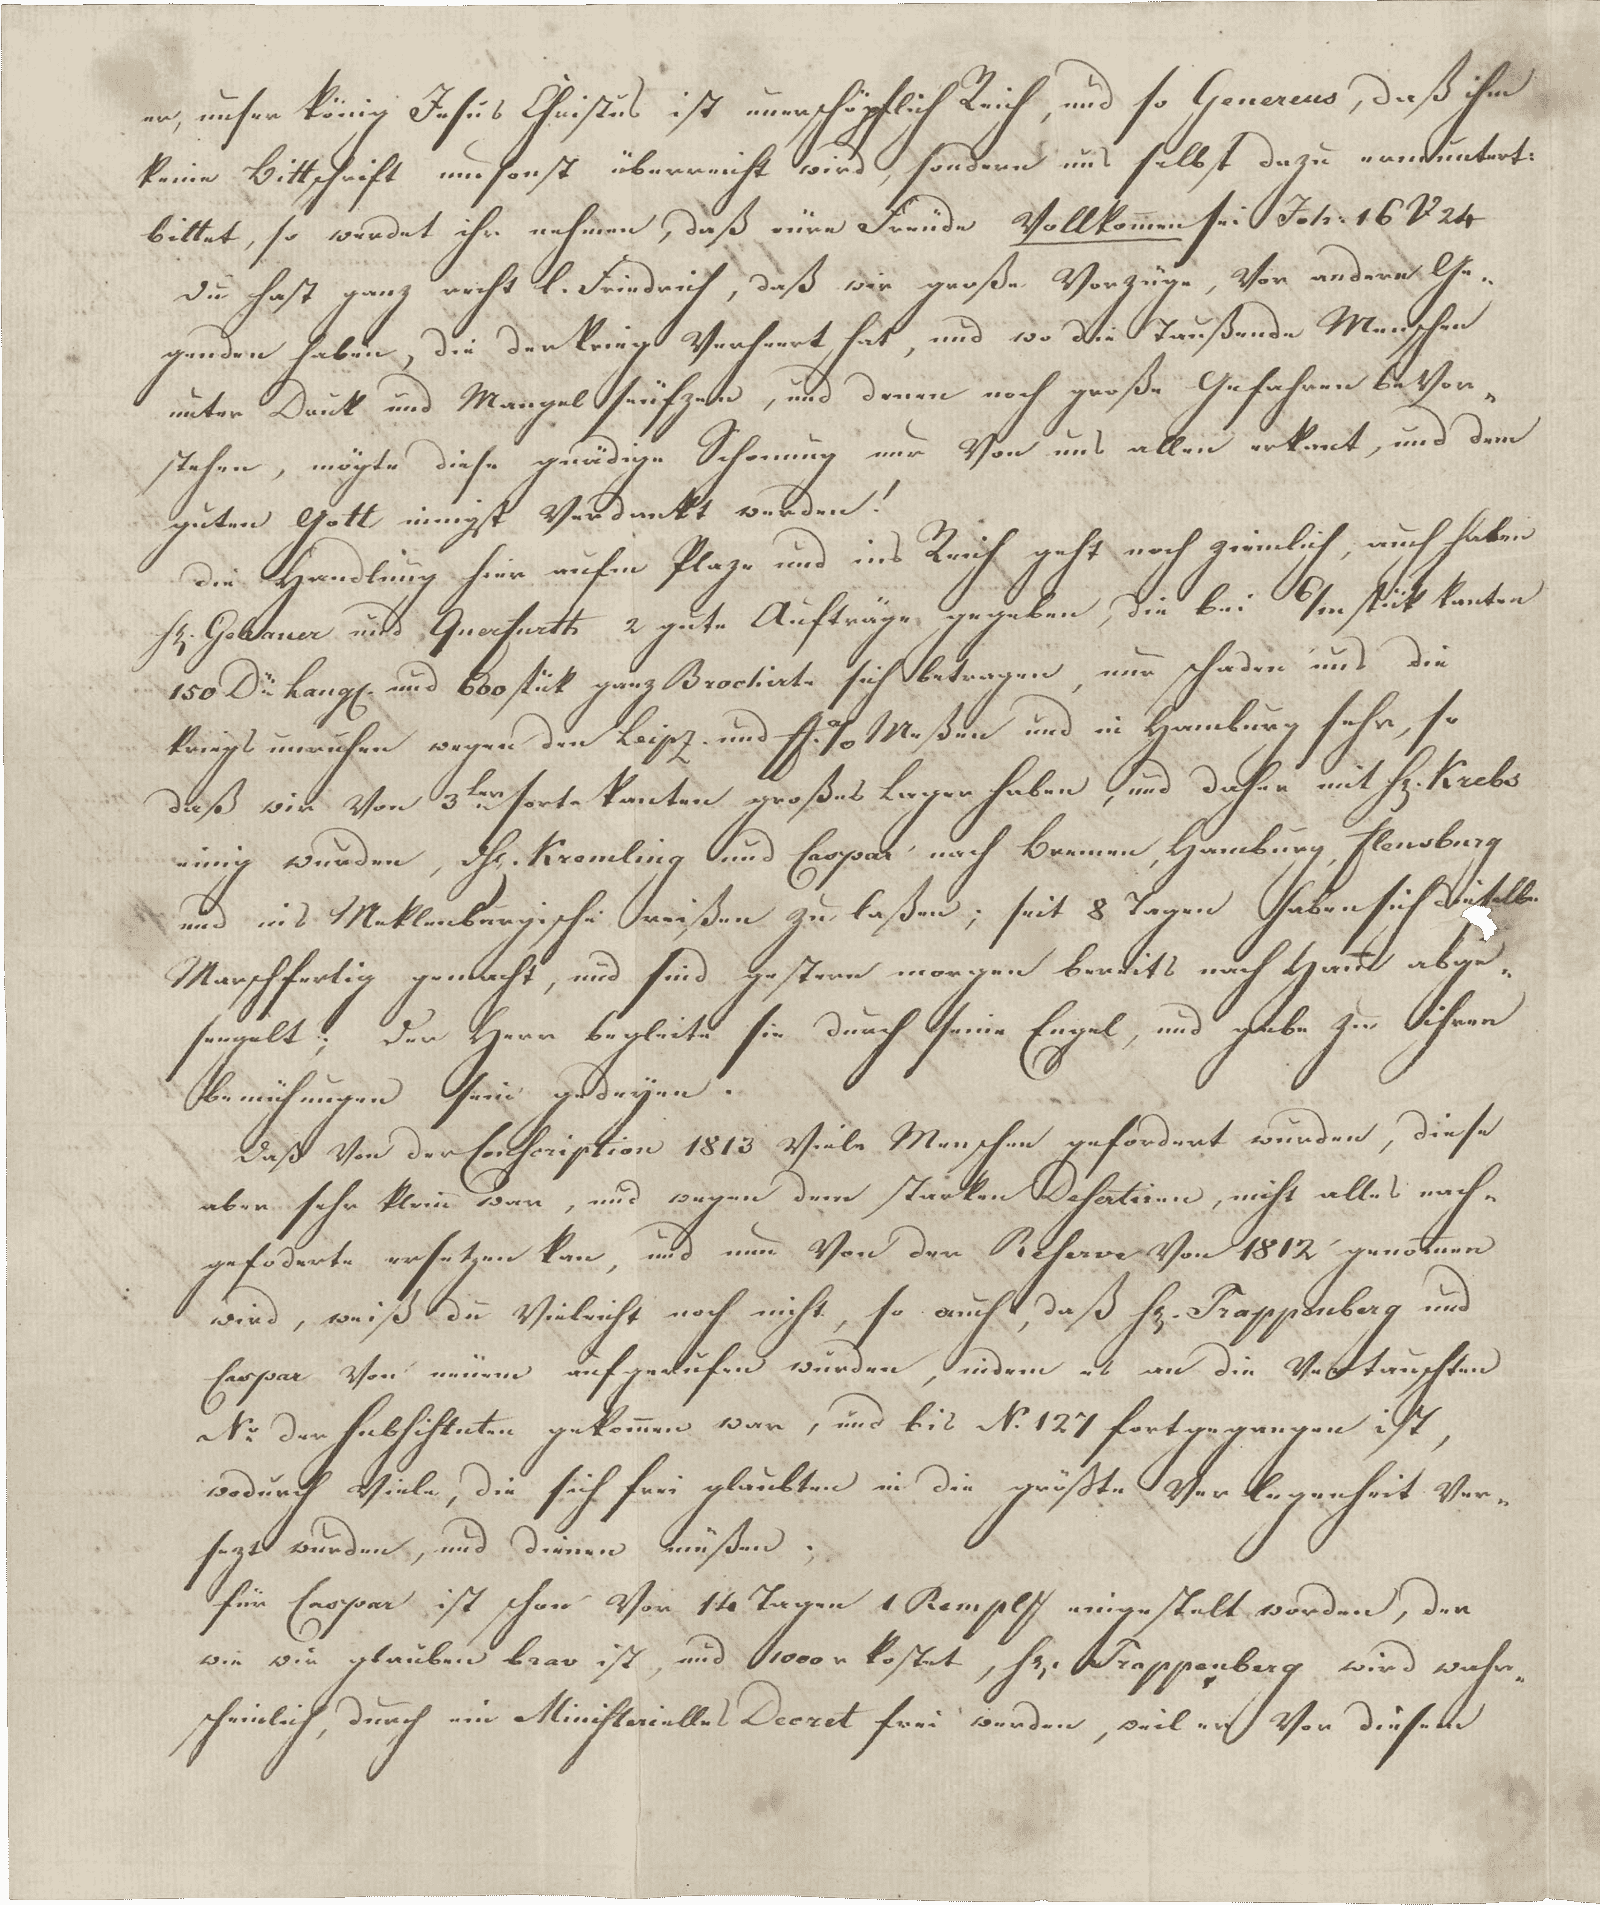 er, unser könig Jesus Christus ist unerschöpflich Reich, und so Genereus, daß ihm
keine Bittschrift umsonst überreicht wird, sondern uns selbst dazu ermuntert:
bittet, so werdet ihr nehmen, daß eüre Freüde Vollkom̅en sei Joh: 16 V 24
Du hast ganz recht l. Friedrich, daß wir große Vorzüge, Vor andern Ge„
genden haben, die der krieg Verheert hat, und wo die Taußende Menschen
unter Druk und Mangel seüfzen, und denen noch große Gefahren beVor„
stehen, mögte diese gnädige Schonung nur Von uns allen erkant, und dem
guten Gott innigst Verdankt werden!
die Handlung hier aufm Plaze und ins Reich geht noch ziemlich, auch haben
H. Gebauer und Querfurth 2 gute Aufträge gegeben, die bei 6/m stük kanten
150 Dü Langf. und 600 stük ganz Brochirte sich betragen, nur schaden uns die
kriegs unruhen wegen den Leipz. und ff. a/o Meßen und in Hamburg sehr, so
daß wir Von 3ler sorte kanten großes Lager haben, und daher mit H. Krebs
einig wurden, H. Kremling und Caspar nach Bremen, Hamburg, Flensburg
und ins Meklenburgische reißen zu laßen; seit 8 Tagen haben sich dieselbe
Marschfertig gemacht, und sind gestern morgen bereits nach Ham̅ abge„
seegelt; Der Herr begleite sie durch seine Engel, und gebe zu ihren
bemühungen sein gedeyen.
Daß Von der Conscription 1813 Viele Menschen gefordert wurden, diese
aber sehr klein war, und wegen dem starken Desertiren, nicht alles nach„
geforderte ersetzen kan, und nun Von der Reserve Von 1812 genom̅en
wird, weiß du Vieleicht noch nicht, so auch, daß H. Trappenberg und
Caspar Von neüem aufgerufen wurden, indem es an die Vertauschten
No der Substituten gekom̅en war, und bis N. 127 fortgegangen ist,
wodurch Viele, die sich frei glaubten in die größte Verlegenheit Ver„
sezt wurden, und dienen müßen;
für Caspar ist schon Vor 14 Tagen 1 Rempls eingestelt worden, der
wie wir glauben brav ist, und 1000 r kostet, H. Trappenberg wird wahr„
scheinlich, durch ein Ministerielles Decret frei werden, weil er Vor diesem